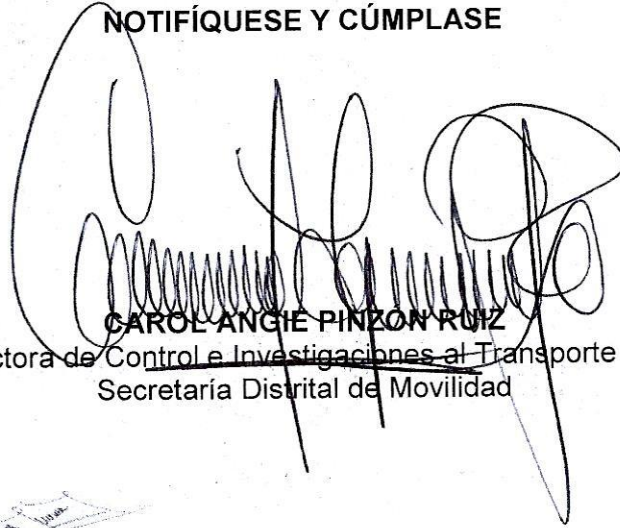 NOTIFÍQUESE Y CÚMPLASE
CAROL ANGIE PINZÓN RUIZ
ctora de Control e Investigaciones al Transporte
Secretaría Distrital de Movilidad